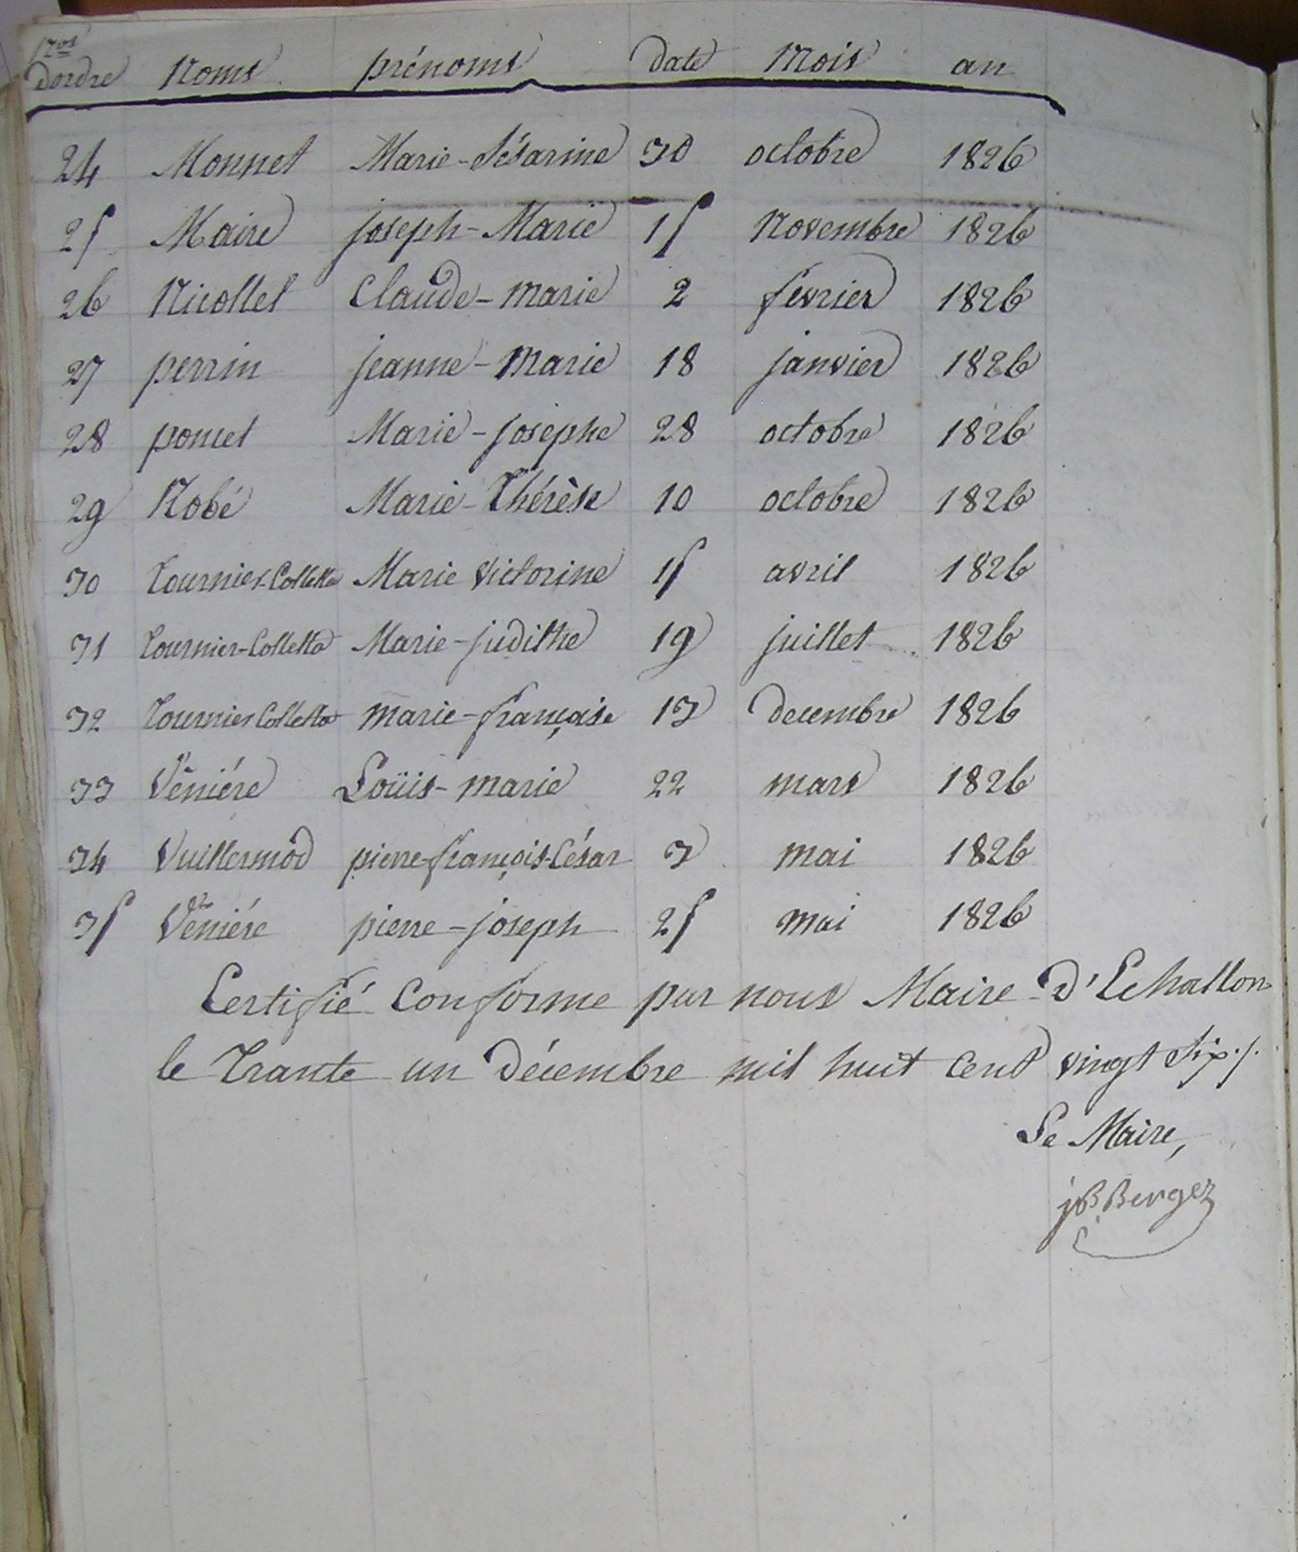 Nos
dordre Noms prénoms date Mois an
24 Monnet Marie-Césarine 30 octobre 1826
25 Maire joseph-Marie 15 Novembre 1826
26 Nicollet Claude-marie 2 février 1826
27 perrin jeanne-Marie 18 janvier 1826
28 poncet Marie-josephe 28 octobre 1826
29 Robé Marie-Thérèse 10 octobre 1826
30 Tournier-Colletta Marie Victorine 15 avril 1826
31 Tournier-Colletta Marie-judithe 19 juillet 1826
32 Tournier Colletta marie-françoise 13 decembre 1826
33 Véniére Loüis-marie 22 mars 1826
34 Vuillermod pierre-françois-César 3 mai 1826
35 Véniére pierre-joseph 25 mai 1826
Certifié Conforme par nous Maire d'Echallon
le Trante un décembre mil huit cent vingt Six./.
Le Maire,
jB Berger